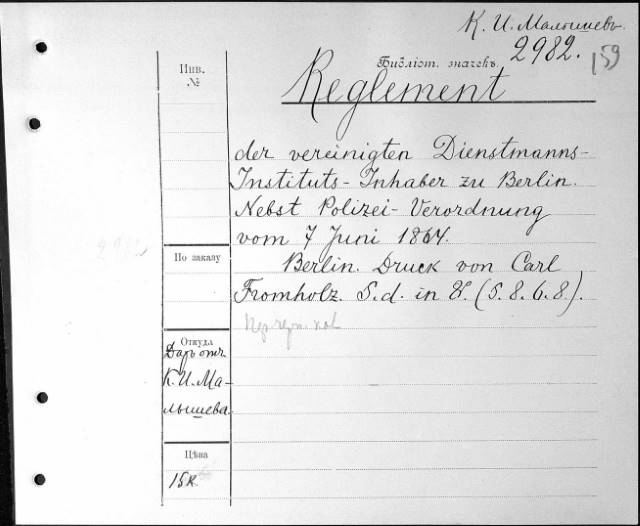 К. И. Малышевъ.
2982.
159
Инв.
№
Библіот. значекъ.
Reglement
der vereinigten Dienstmanns-
Instituts-Inhaber zu Berlin.
Nebst Polizei-Verordnung
vom 7 Juni 1864.
2982
По заказу
Berlin. Druck von Carl
Fromholz. S.d. in 8. (5.8.6.8.).
Откуда
Даръ отъ
К.И.Ма-
лышева.
Цѣна
15к